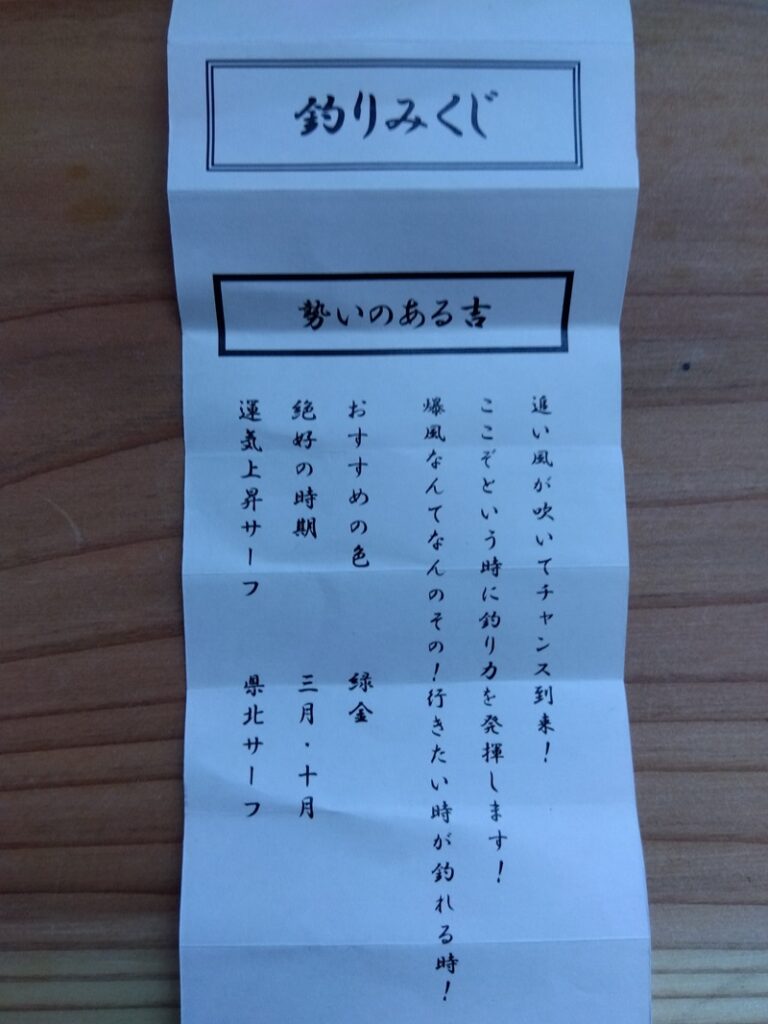 釣りみくじ
勢いのある吉
追い風が吹いてチャンス到来！
ここぞという時に釣り力を発揮します！
爆風なんてなんのその！行きたい時が釣れる時！
おすすめの色　緑金
絶好の時期　三月・十月
運気上昇サーフ　県北サーフ